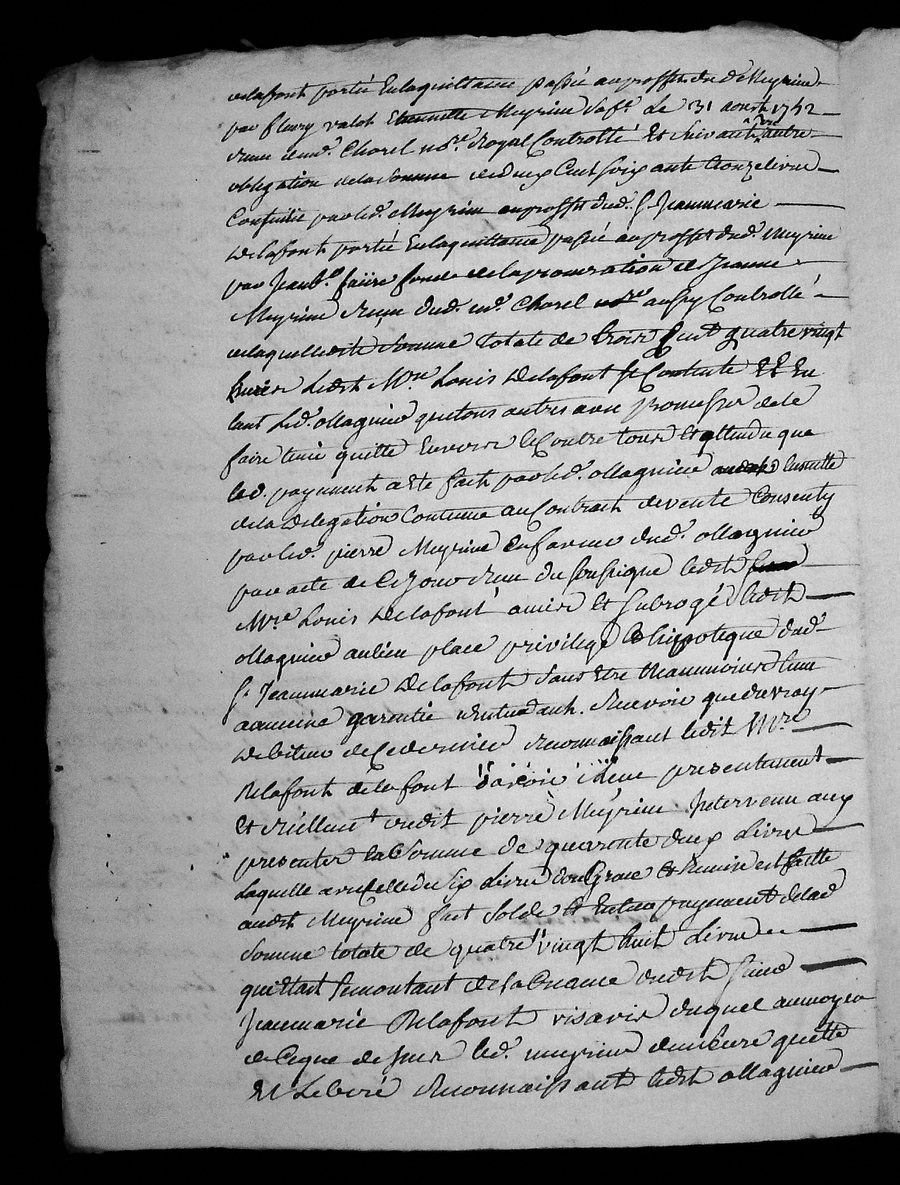 delafont portée En laquittance passée au proffit du d. Meyrine
par fleury valot Etiennette Meyrine sa fe. Le 31 aoust 1752
Reçue dud. Chorel nore. Royal Controllé Et Suivant une autre
obligation de la Somme de deux Cent Soixante Livre
Consentie par led. Meyrine au proffit dud. Sr. Jeanmarie
Delafont portée En laquittance passée au proffit dud. Meyrine
par Jean fondé de la procuration de Jeanne
Meyrine Reçue dud. me. Chorel aussy Controllé
de laquelle dite Somme totale de trois Cent quatre vingt
Ledit Mre Louis Delafont Se Contente Et En
tant Led. ollagnier que tous autres avec promesse de le
faire tenir quitte Envers Et Contre tous Et attendu que
led. payement a Eté fait par led. ollagnier Ensuitte
de la Delegation Contenue au Contract de vente Consenty
par led. pierre Meyrine En faveur dud. ollagnier
par acte de Ce Jour Reçu du Soussigné ledit
Mre. Louis Delafont a mis Et Subrogé ledit
ollagnier au lieu place privilege Et hippoteque dud.
Sr. Jeanmarie Delafont Sans Etre theanmoins tenu
a aucune garentie Recevoir que du vray
Debiteur de Ce dernier Reconnaissant ledit Mre
Delafont de la font d'avoir Reçu presentement
Et Réellement dudit pierre Meyrine Intervenu aux
presentes la Somme de quarante deux Livres
Laquelle avec Celle de Six Livres dont Grace Et Remise est faitte
audit Meyrine fait Solde Et Entier payement de lad.
Somme totale de quatre vingt huit Livres
quittait Le montant de la Creance dudit Sieur
Jeanmarie Delafont vis a vis duquel au moyen
de Ceque dessus led. meyrine demeure quitte
Et Liberé Reconnaissant ledit ollagnier